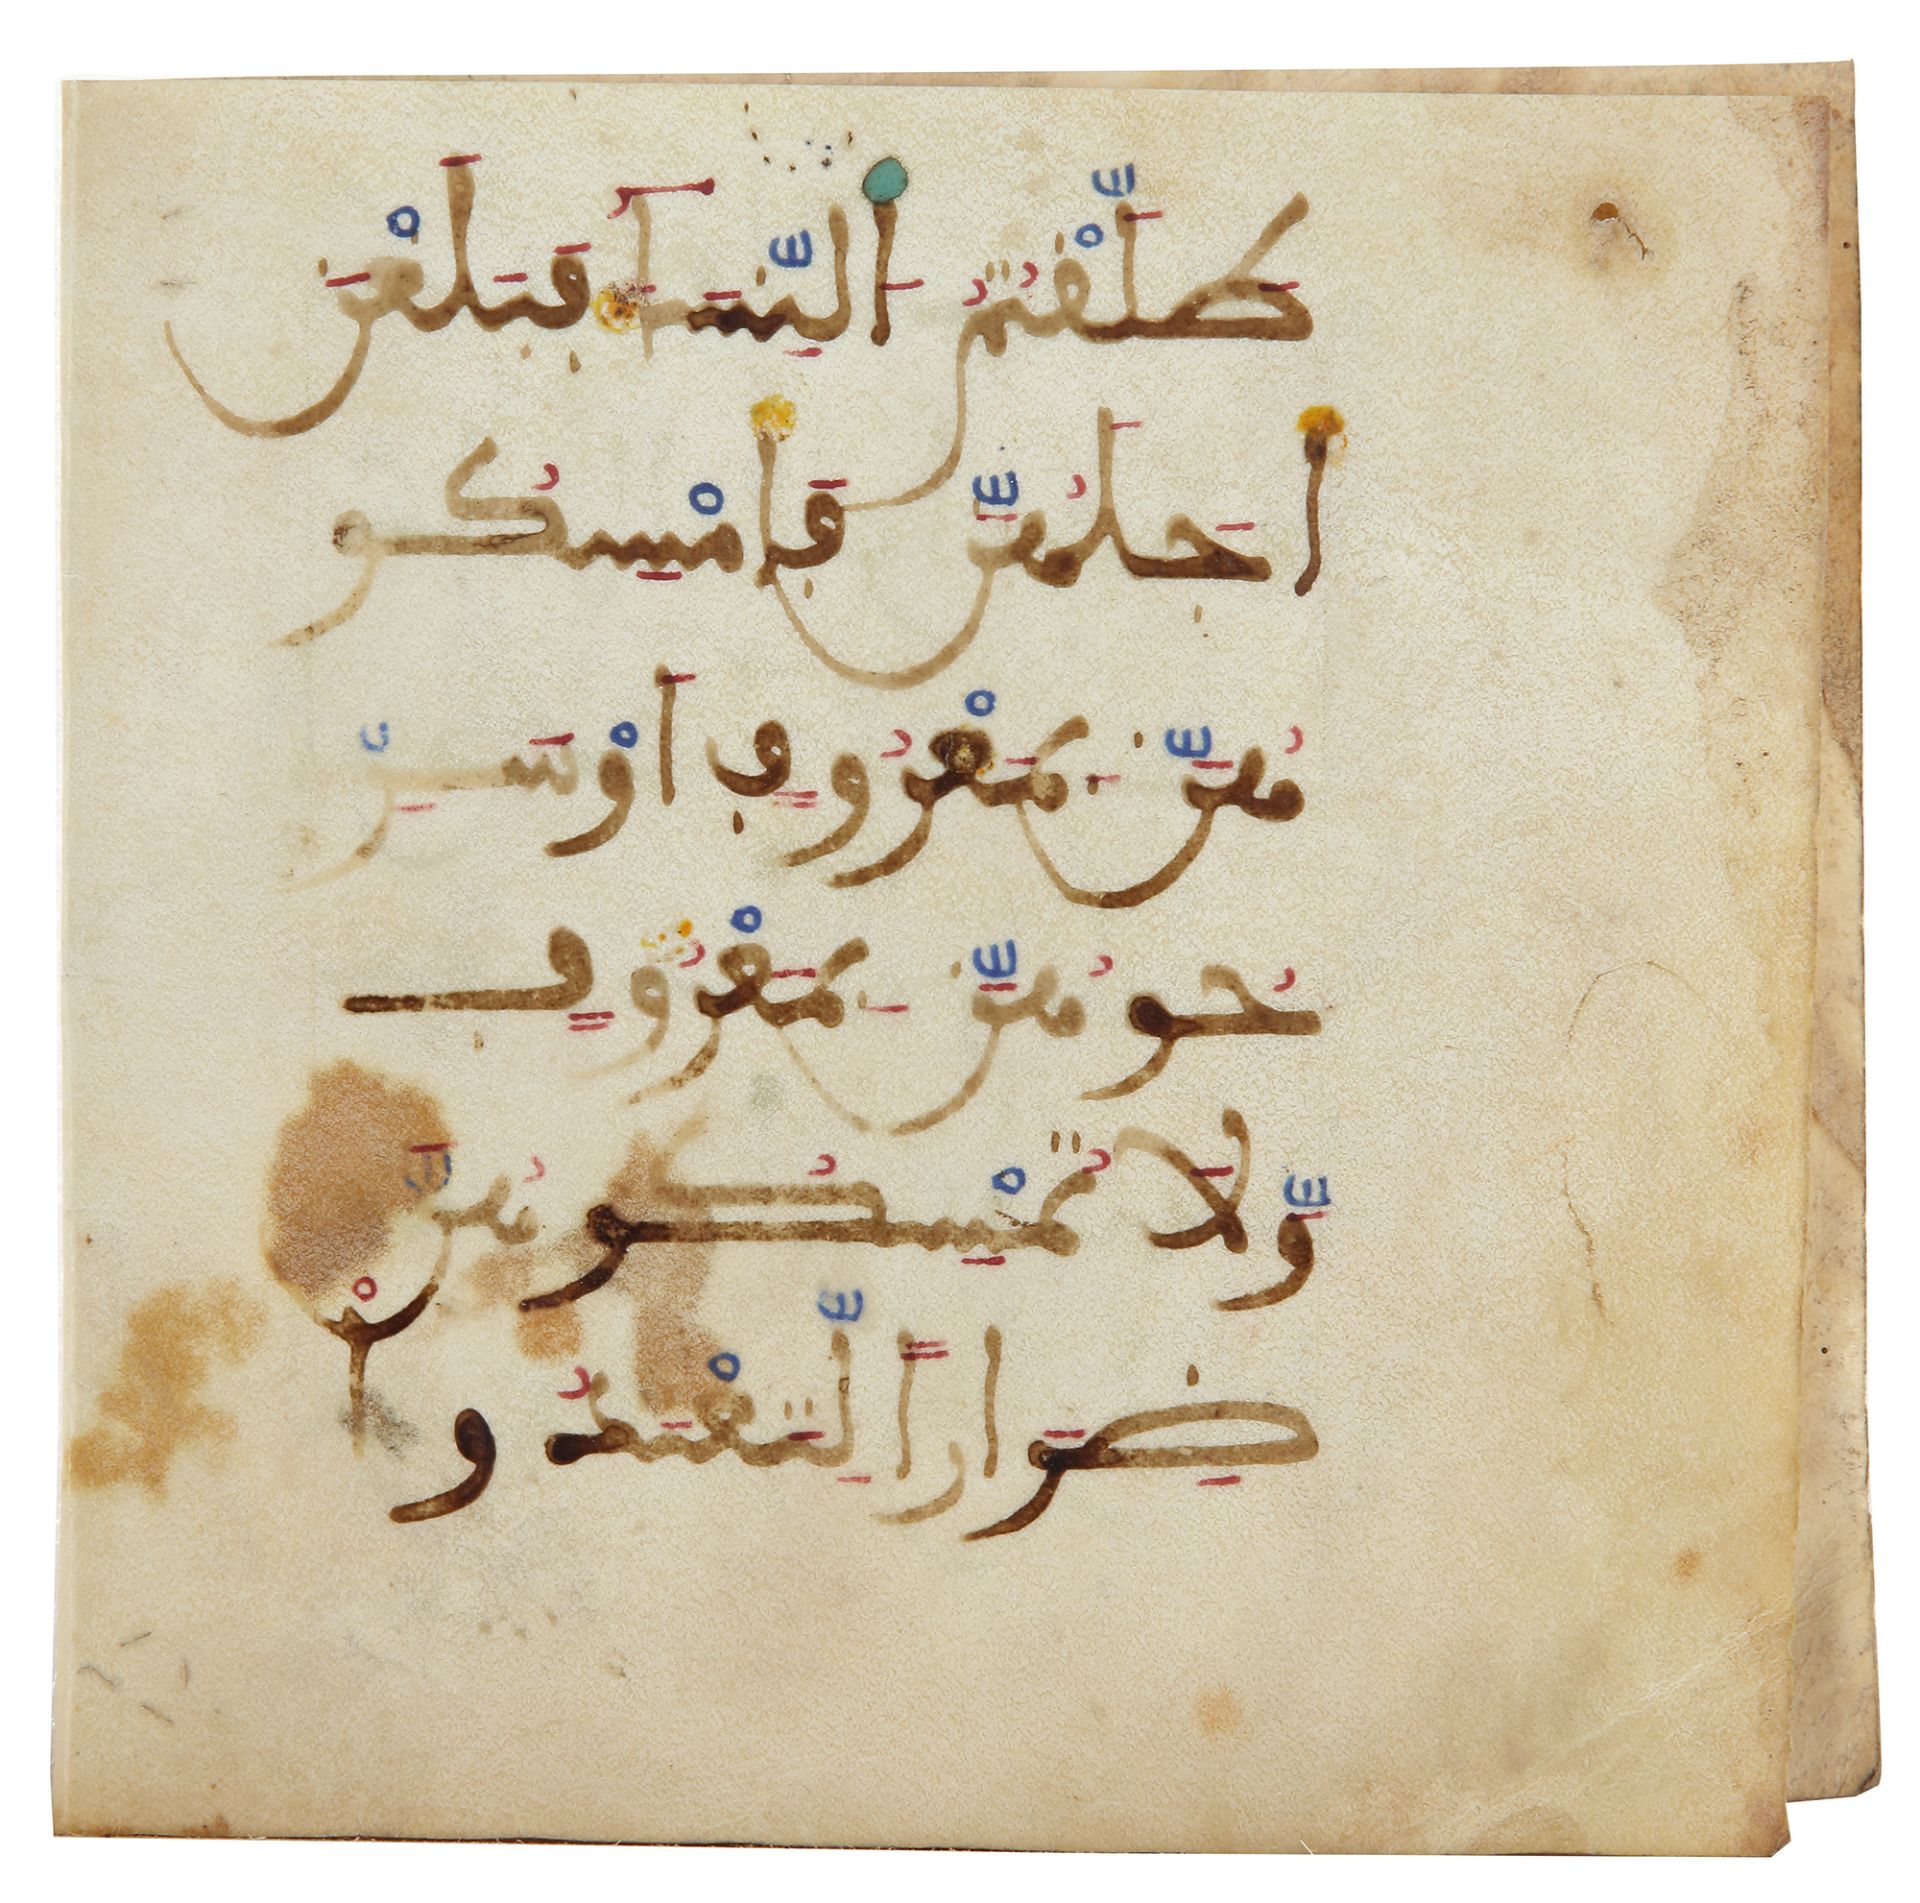 طَلَّقْتُمُ اُلنِّسَآءَ فَبَلَغْنَ
أَجَلَهُنَّ فَأَمْسِكُو
هُنَّ بِمَعْرُوفٍ أَوْ سَرِّ
حُوهُنَّ بِمَعْرُوفٍ
وَّلَا تُمْسِكُوهُنَّ
ضِرَاراً لِّتَعْتَدُواْ